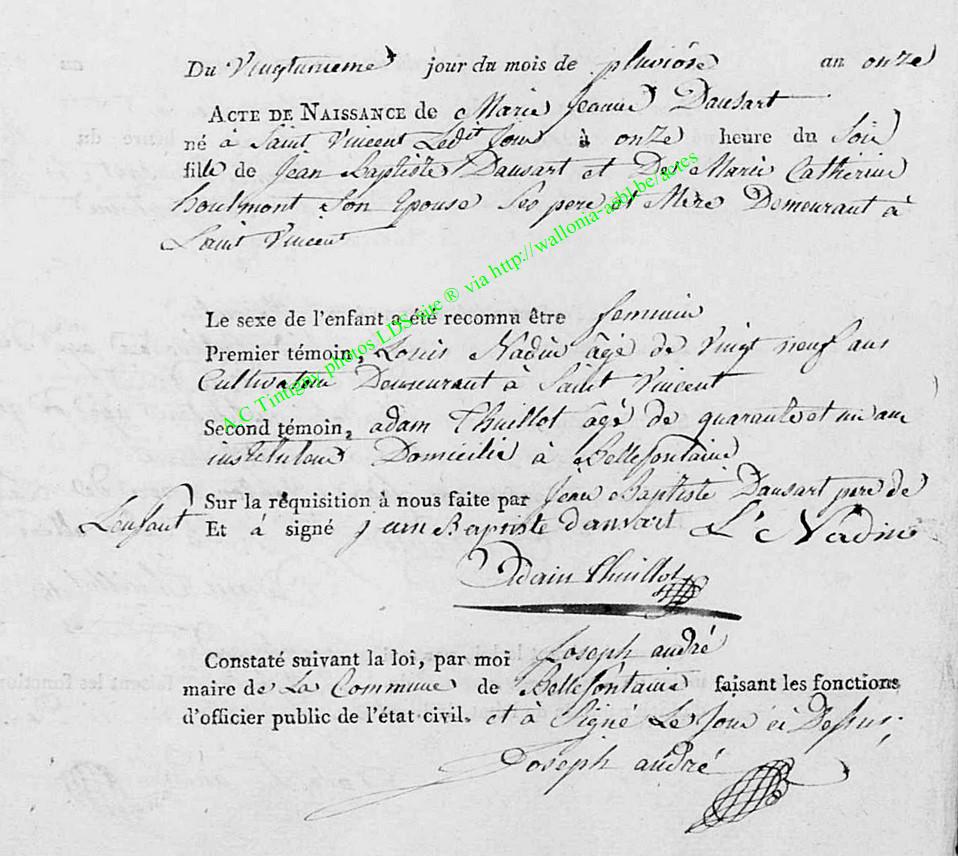 Du vingtunieme jour du mois de pluviôse an onze
ACTE DE NAISSANCE de Marie Jeanne Dausart
né à Saint Vincent Ledt Jour à onze heure du Soir
fille de Jean Baptiste Dausart et De Marie Catherine
houlmont Son Epouse Ses pere et Mère Demeurant à
Saint Vincent
Le sexe de l'enfant a été reconnu être feminin
Premier témoin, Louis Nadin âgé de vingt neuf ans
Cultivateur Demeurant à Saint Vincent
Second témoin, adam Thuillot âgé de quarante et un an
instituteur Domicilié à Bellefontaine
Sur la réquisition à nous faite par Jean Baptiste Dausart pere de
L'enfant Et à signé jean Baptiste dansart L' Nadin
Adam Thuillot
Constaté suivant la loi, par moi Joseph andré
maire de La Commune de Bellefontaine faisant les fonctions
d'officier public de l'état civil. et à Signé Le Jour ci Dessus;
Joseph andré
A.C Tintigny photos LDS site ® via http://wallonia-asbl.be/actes